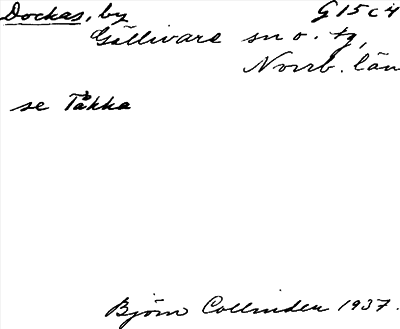 Dockas, by G 15 c 4
Gällivare sn o. tg,
Norrb. län
se Tåkka
Björn Collinder 1937.